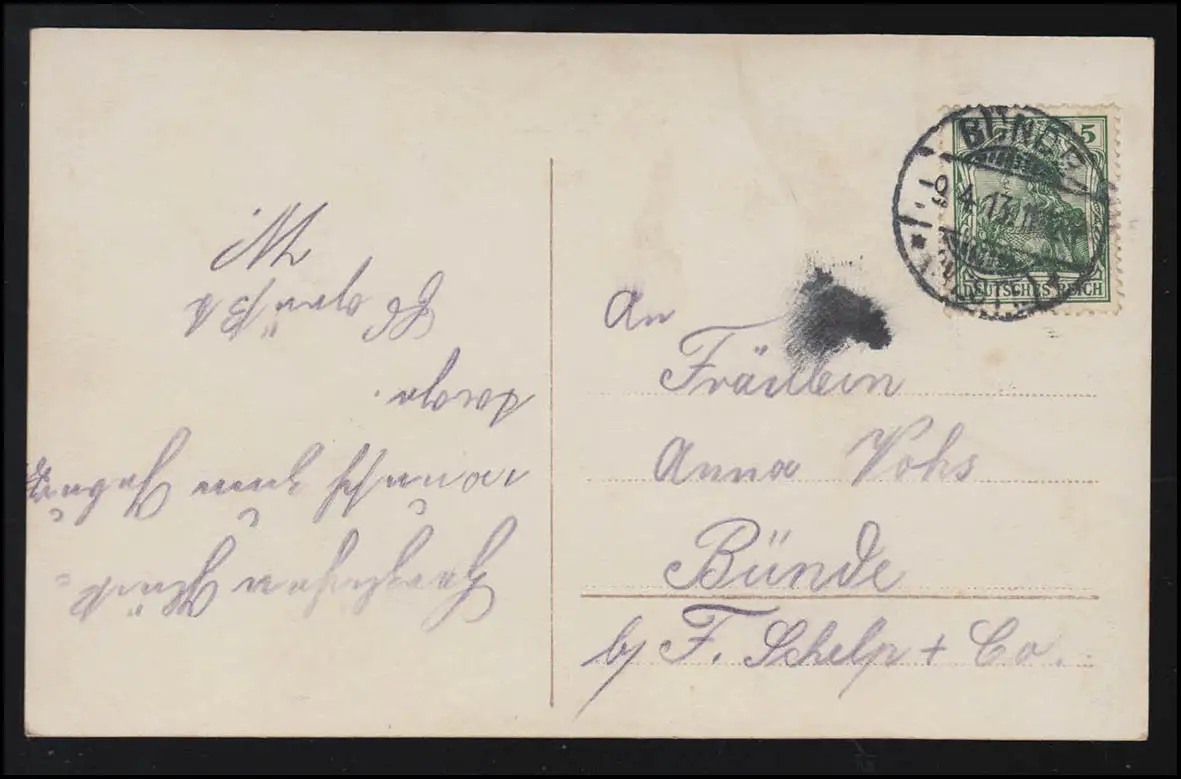 BÜNDE
5
9.4.13.
DEUTSCHES REICH
An
Fräulein
Anna Vohs
Bünde
by F. Schelp + Co.
Herzlichen Glück=
wunsch zum Geburts
tage.
Es grüßt